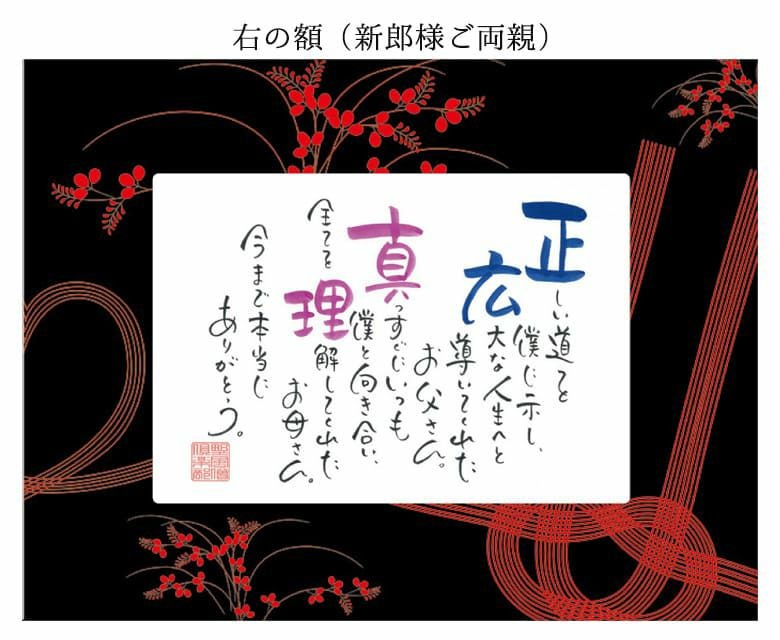 右の額（新郎様ご両親）
正しい道を
僕に示し、
広大な人生へと
導いてくれた
お父さん。
真っすぐにいつも
僕と向き合い、
全てを理解してくれた
お母さん。
今まで本当に
ありがとう。